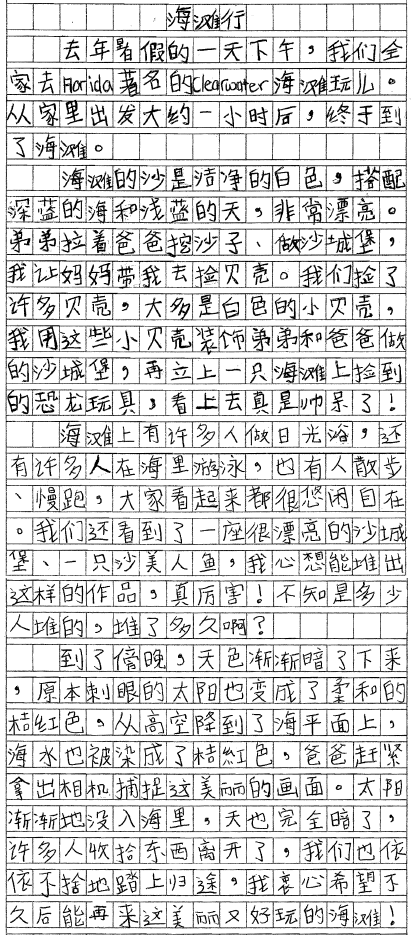 海滩行
去年暑假的一天下午，我们全
家去Florida著名的Clearwater海滩玩儿。
从家里出发大约一小时后，终于到
了海滩。
海滩的沙是洁净的白色，搭配
深蓝的海和浅蓝的天，非常漂亮。
弟弟拉着爸爸挖沙子、做沙城堡，
我让妈妈带我去捡贝壳。我们捡了
许多贝壳，大多是白色的小贝壳，
我用这些小贝壳装饰弟弟和爸爸做
的沙城堡，再立上一只海滩上捡到
的恐龙玩具，看上去真是帅呆了！
海滩上有许多人做日光浴，还
有许多人在海里游泳，也有人散步
、慢跑，大家看起来都很悠闲自在
。我们还看到了一座很漂亮的沙城
堡、一只沙美人鱼，我心想能堆出
这样的作品，真厉害！不知是多少
人堆的，堆了多久啊？
到了傍晚，天色渐渐暗了下来
，原本刺眼的太阳也变成了柔和的
桔红色，从高空降到了海平面上，
海水也被染成了桔紅色，爸爸赶紧
拿出相机捕捉这美丽的画面。太阳
渐渐地没入海里，天也完全暗了，
许多人收拾东西离开了，我们也依
依不捨地踏上归途，我衷心希望不
久后能再来这美丽又好玩的海滩！